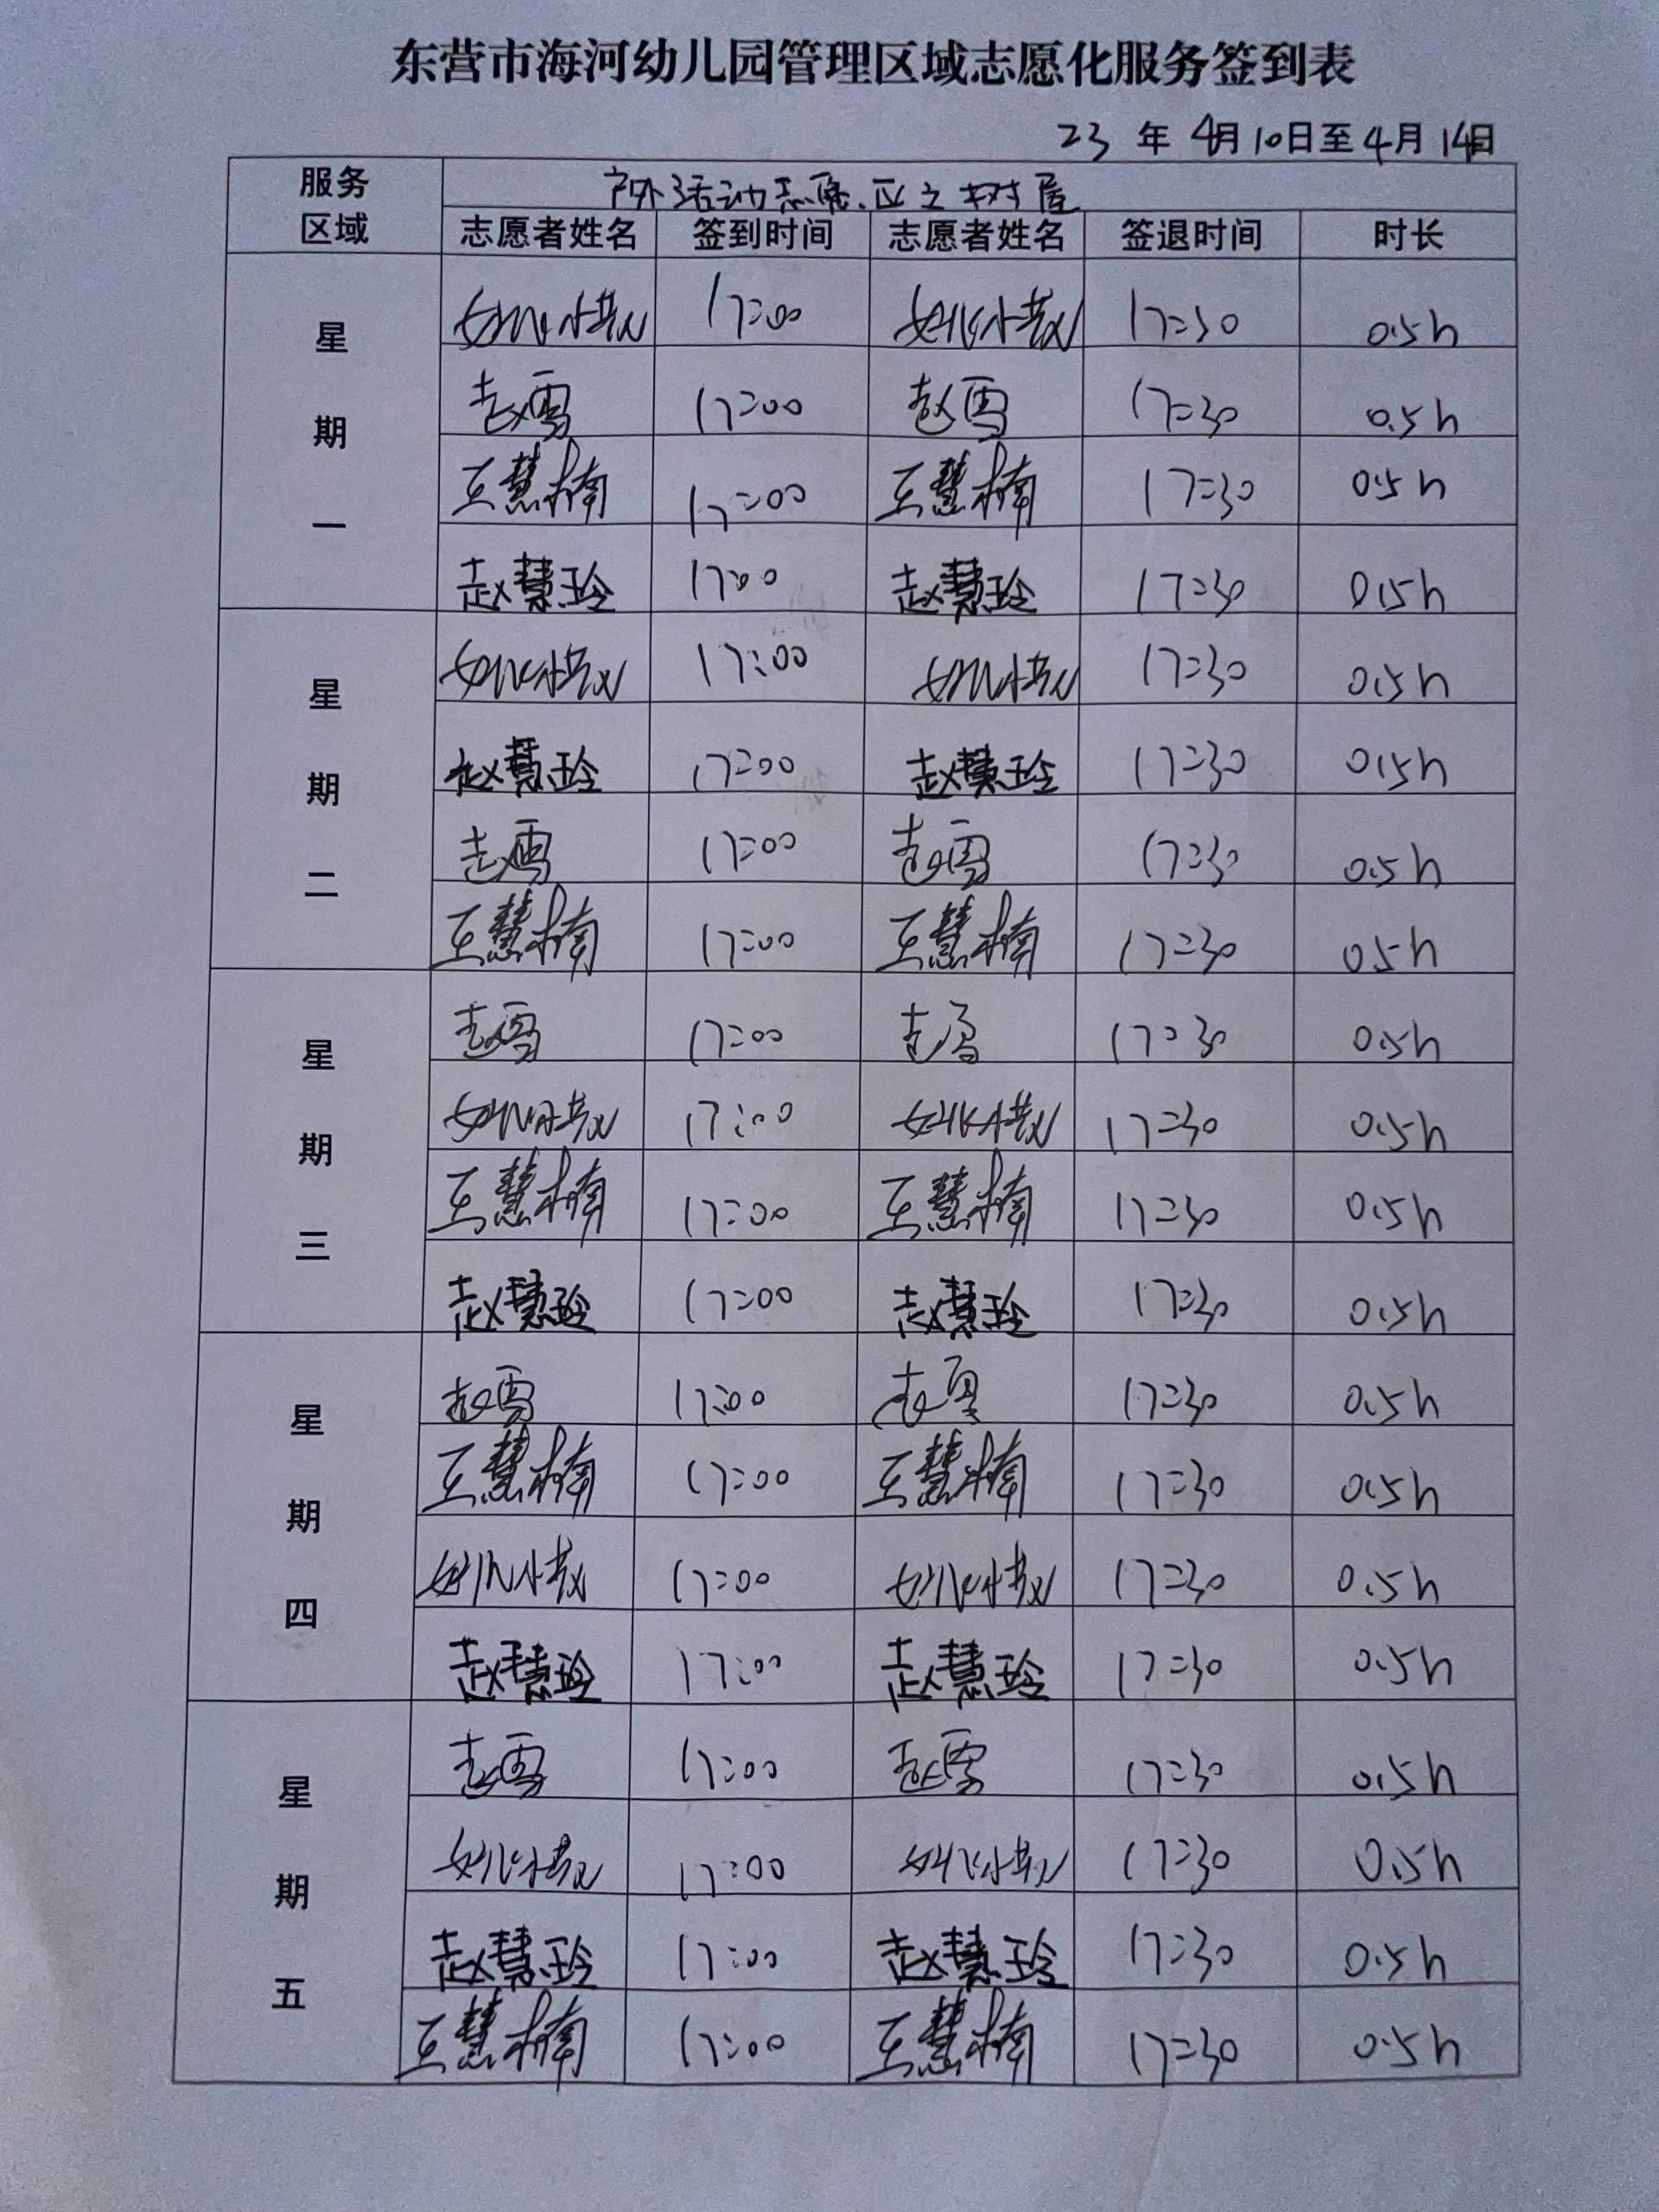 东营市海河幼儿园管理区域志愿化服务签到表
23 年 4月 10日至 4月 14日
服务区域 户外活动志愿 之 树屋
志愿者姓名 签到时间 志愿者姓名 签退时间 时长
星期一
17:00 17:30 0.5h
赵雪 17:00 赵雪 17:30 0.5h
王慧楠 17:00 王慧楠 17:30 0.5h
赵慧玲 17:00 赵慧玲 17:30 0.5h
星期二
17:00 17:30 0.5h
赵慧玲 17:00 赵慧玲 17:30 0.5h
赵雪 17:00 赵雪 17:30 0.5h
王慧楠 17:00 王慧楠 17:30 0.5h
星期三
赵雪 17:00 赵雪 17:30 0.5h
17:00 17:30 0.5h
王慧楠 17:00 王慧楠 17:30 0.5h
赵慧玲 17:00 赵慧玲 17:30 0.5h
星期四
赵雪 17:00 赵雪 17:30 0.5h
王慧楠 17:00 王慧楠 17:30 0.5h
17:00 17:30 0.5h
赵慧玲 17:00 赵慧玲 17:30 0.5h
星期五
赵雪 17:00 赵雪 17:30 0.5h
17:00 17:30 0.5h
赵慧玲 17:00 赵慧玲 17:30 0.5h
王慧楠 17:00 王慧楠 17:30 0.5h